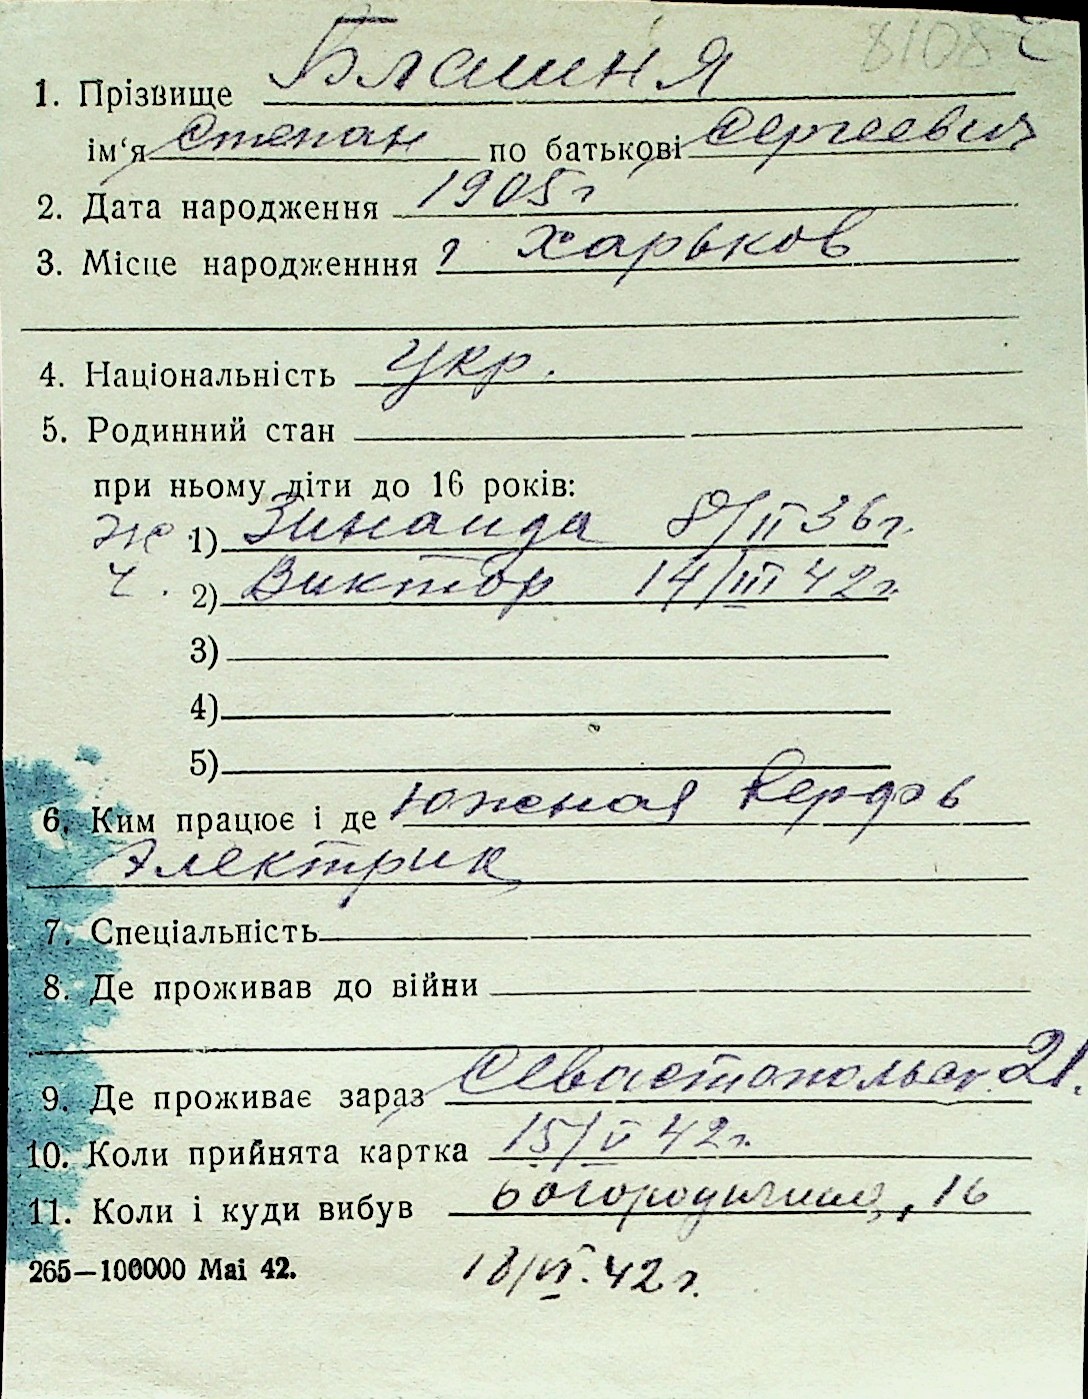 8108
1. Прізвище Блашня
ім‘я Степан по батькові Сергеевич
2. Дата народження 1905 г
3. Місце народженння г Харьков
4. Національність Укр.
5. Родинний стан
при ньому діти до 16 років:
ж 1) Зинаида 8/II 36 г.
ч. 2) Виктор 14/III 42 г.
3)
4)
5)
6. Ким працює і де Южная верфь
Электрик
7. Спеціальність
8. Де проживав до війни
9. Де проживає зараз Севастопольск. 21.
10. Коли прийнята картка 15/V 42 г.
11. Коли і куди вибув 16
265—100000 Маі 42. 18/VI. 42 г.